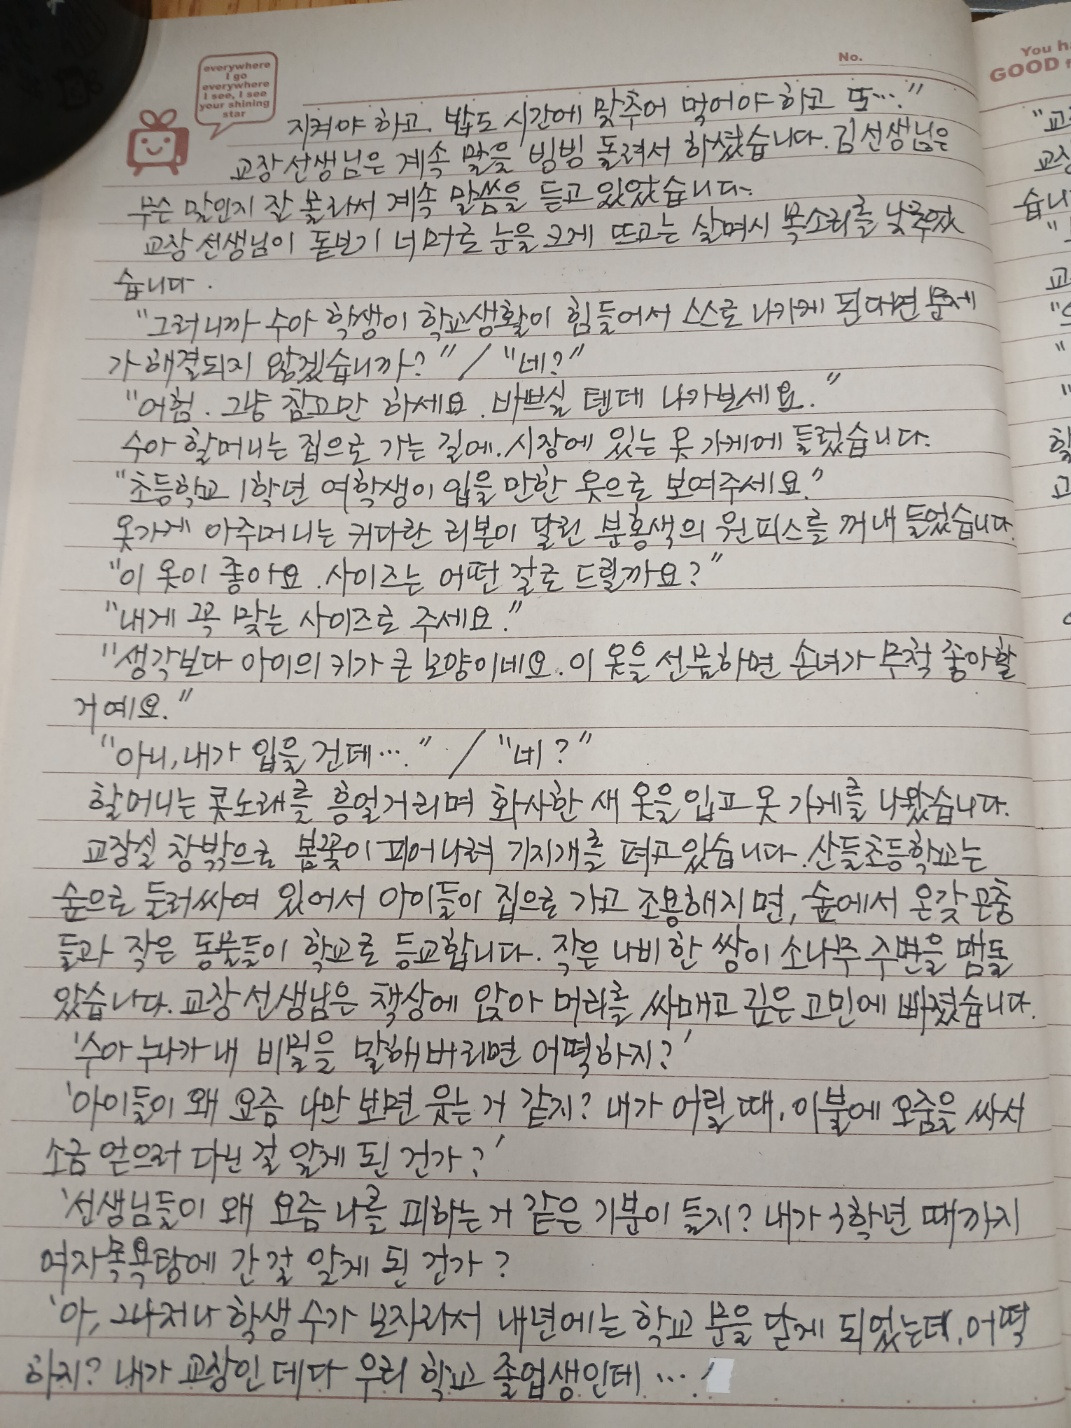 everywhere
I go
everywhere
I see, I see
your shining
star
No.
지켜야 하고, 밥도 시간에 맞추어 먹어야 하고 또…."
교장선생님은 계속 말을 빙빙 돌려서 하셨습니다. 김선생님은
무슨 말인지 잘 몰라서 계속 말씀을 듣고 있었습니다.
교장 선생님이 돋보기 너머로 눈을 크게 뜨고는 살며시 목소리를 낮추었
습니다.
"그러니까 수아 학생이 학교생활이 힘들어서 스스로 나가게 된다면 문제
가 해결되지 않겠습니까?" / "네?"
"어험. 그냥 참고만 하세요. 바쁘실 텐데 나가보세요."
수아 할머니는 집으로 가는 길에, 시장에 있는 옷 가게에 들렀습니다.
"초등학교 1학년 여학생이 입을 만한 옷으로 보여주세요."
옷가게 아주머니는 커다란 리본이 달린 분홍색의 원피스를 꺼내 들었습니다.
"이 옷이 좋아요. 사이즈는 어떤 걸로 드릴까요?"
"내게 꼭 맞는 사이즈로 주세요."
"생각보다 아이의 키가 큰 모양이네요. 이 옷을 선물하면 손녀가 무척 좋아할
거예요."
"아니, 내가 입을 건데…" / "네?"
할머니는 콧노래를 흥얼거리며 화사한 새 옷을 입고 옷 가게를 나왔습니다.
교장실 창밖으로 봄꽃이 피어나려 기지개를 펴고 있습니다. 산들초등학교는
숲으로 둘러싸여 있어서 아이들이 집으로 가고 조용해지면, 숲에서 온갖 곤충
들과 작은 동물들이 학교로 등교합니다. 작은 나비 한 쌍이 소나무 주변을 맴돌
았습니다. 교장 선생님은 책상에 앉아 머리를 싸매고 깊은 고민에 빠졌습니다.
'수아 누나가 내 비밀을 말해버리면 어떡하지?'
'아이들이 왜 요즘 나만 보면 웃는 거 같지? 내가 어릴 때, 이불에 오줌을 싸서
소금 얻으러 다닌 걸 알게 된 건가?'
'선생님들이 왜 요즘 나를 피하는 거 같은 기분이 들지? 내가 3학년 때까지
여자목욕탕에 간 걸 알게 된 건가?
'아, 그나저나 학생 수가 모자라서 내년에는 학교 문을 닫게 되었는데, 어떡
하지? 내가 교장인 데다 우리 학교 졸업생인데…'
You ha
GOOD
"교
교장
습니
교
"
할
고